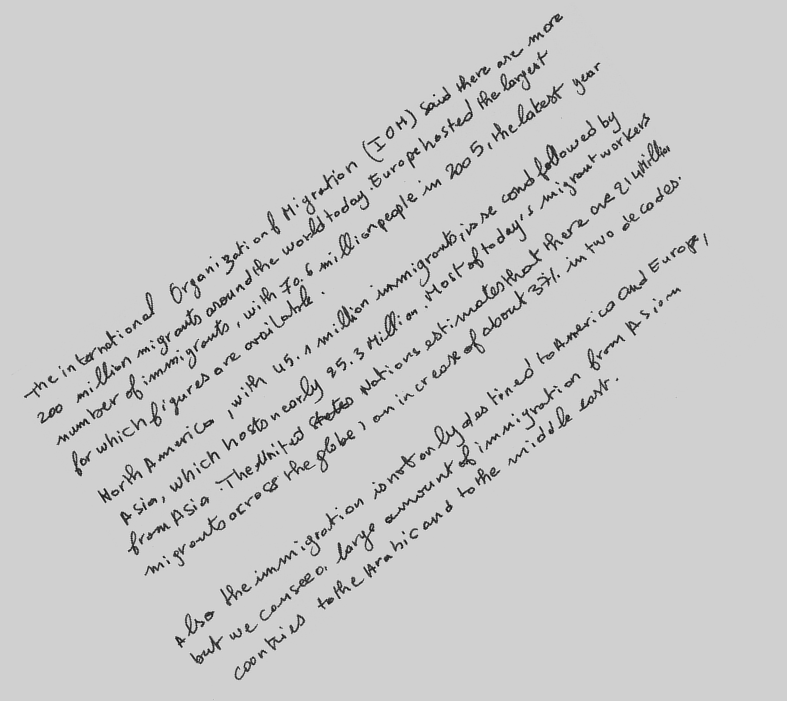 The international Organization of Migration (IOM) said there are more
200 million migrants around the world today. Europe hosted the largest
number of immigrants, with 70.6 million people in 2005, the latest year
for which figures are available.
North America, with 45.1 million immigrants, is second followed by
Asia, which hosts nearly 25.3 Million. Most of today's migrant workers
from Asia. The United Nations estimates that there are 214 Million
migrants across the globe, an increase of about 37% in two decades.
Also the immigration is not only destined to America and Europe,
but we can see a large amount of immigration from Asian
countries to the Arabic and to the middle east.